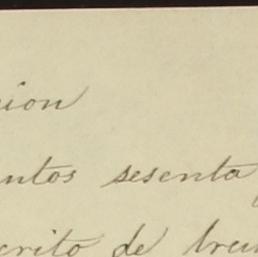 cion
ntos sesenta
crito de